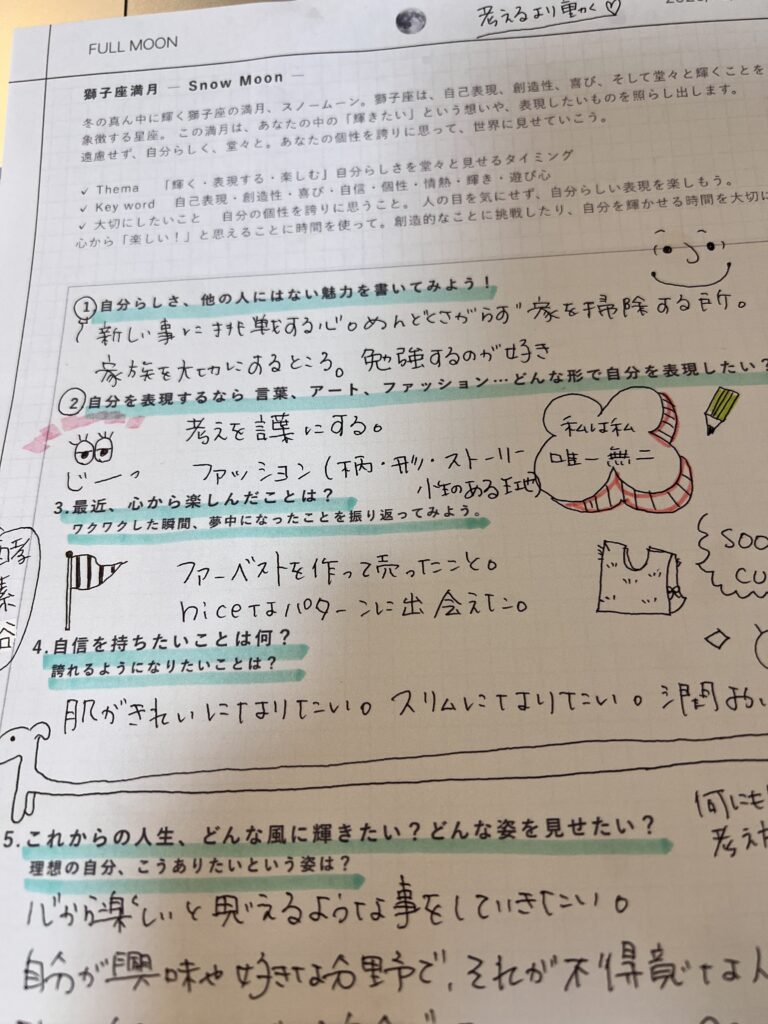 考えるより動く♡
FULL MOON
獅子座満月 — Snow Moon —
冬の真ん中に輝く獅子座の満月、スノームーン。獅子座は、自己表現、創造性、喜び、そして堂々と輝くことを
象徴する星座。この満月は、あなたの中の「輝きたい」という想いや、表現したいものを照らし出します。
遠慮せず、自分らしく、堂々と。あなたの個性を誇りに思って、世界に見せていこう。
✓ Thema 「輝く・表現する・楽しむ」自分らしさを堂々と見せるタイミング
✓ Key word 自己表現・創造性・喜び・自信・個性・情熱・輝き・遊び心
✓ 大切にしたいこと 自分の個性を誇りに思うこと。人の目を気にせず、自分らしい表現を楽しもう。
心から「楽しい!」と思えることに時間を使って。創造的なことに挑戦したり、自分を輝かせる時間を大切に
①自分らしさ、他の人にはない魅力を書いてみよう!
新しい事に挑戦する心。めんどくさがらず家を掃除する所。
家族を大切にするところ。勉強するのが好き
②自分を表現するなら 言葉、アート、ファッション…どんな形で自分を表現したい?
考えを言葉にする。
じーっ
ファッション(柄・形・ストーリー
性のある生地)
私は私
唯一無二
3.最近、心から楽しんだことは?
ワクワクした瞬間、夢中になったことを振り返ってみよう。
ファーベストを作って売ったこと。
niceなパターンに出会えた。
酵
素
浴
4.自信を持ちたいことは何?
誇れるようになりたいことは?
肌がきれいになりたい。スリムになりたい。潤
何にも
考え
5.これからの人生、どんな風に輝きたい?どんな姿を見せたい?
理想の自分、こうありたいという姿は?
心から楽しいと思えるような事をしていきたい。
自分が興味や好きな分野で、それが不得意な人